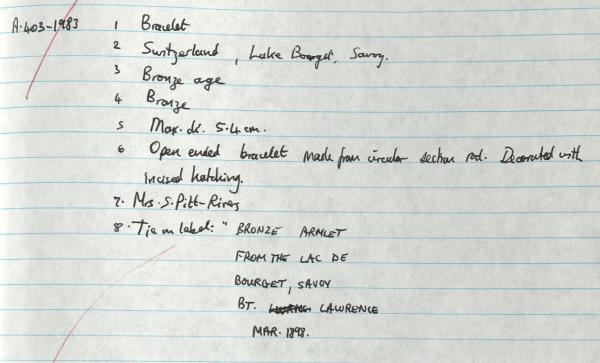 A.403-1983 1 Bracelet
2 Switzerland, Lake Bourget, Savoy.
3 Bronze age
4 Bronze
5 Max. di. 5.4 cm.
6 Open ended bracelet made from circular section rod. Decorated with
incised hatching.
7. Mrs. S. Pitt-Rivers
8. Tie on label: " BRONZE ARMLET
FROM THE LAC DE
BOURGET, SAVOY
BT. LAWRENCE
MAR. 1898.